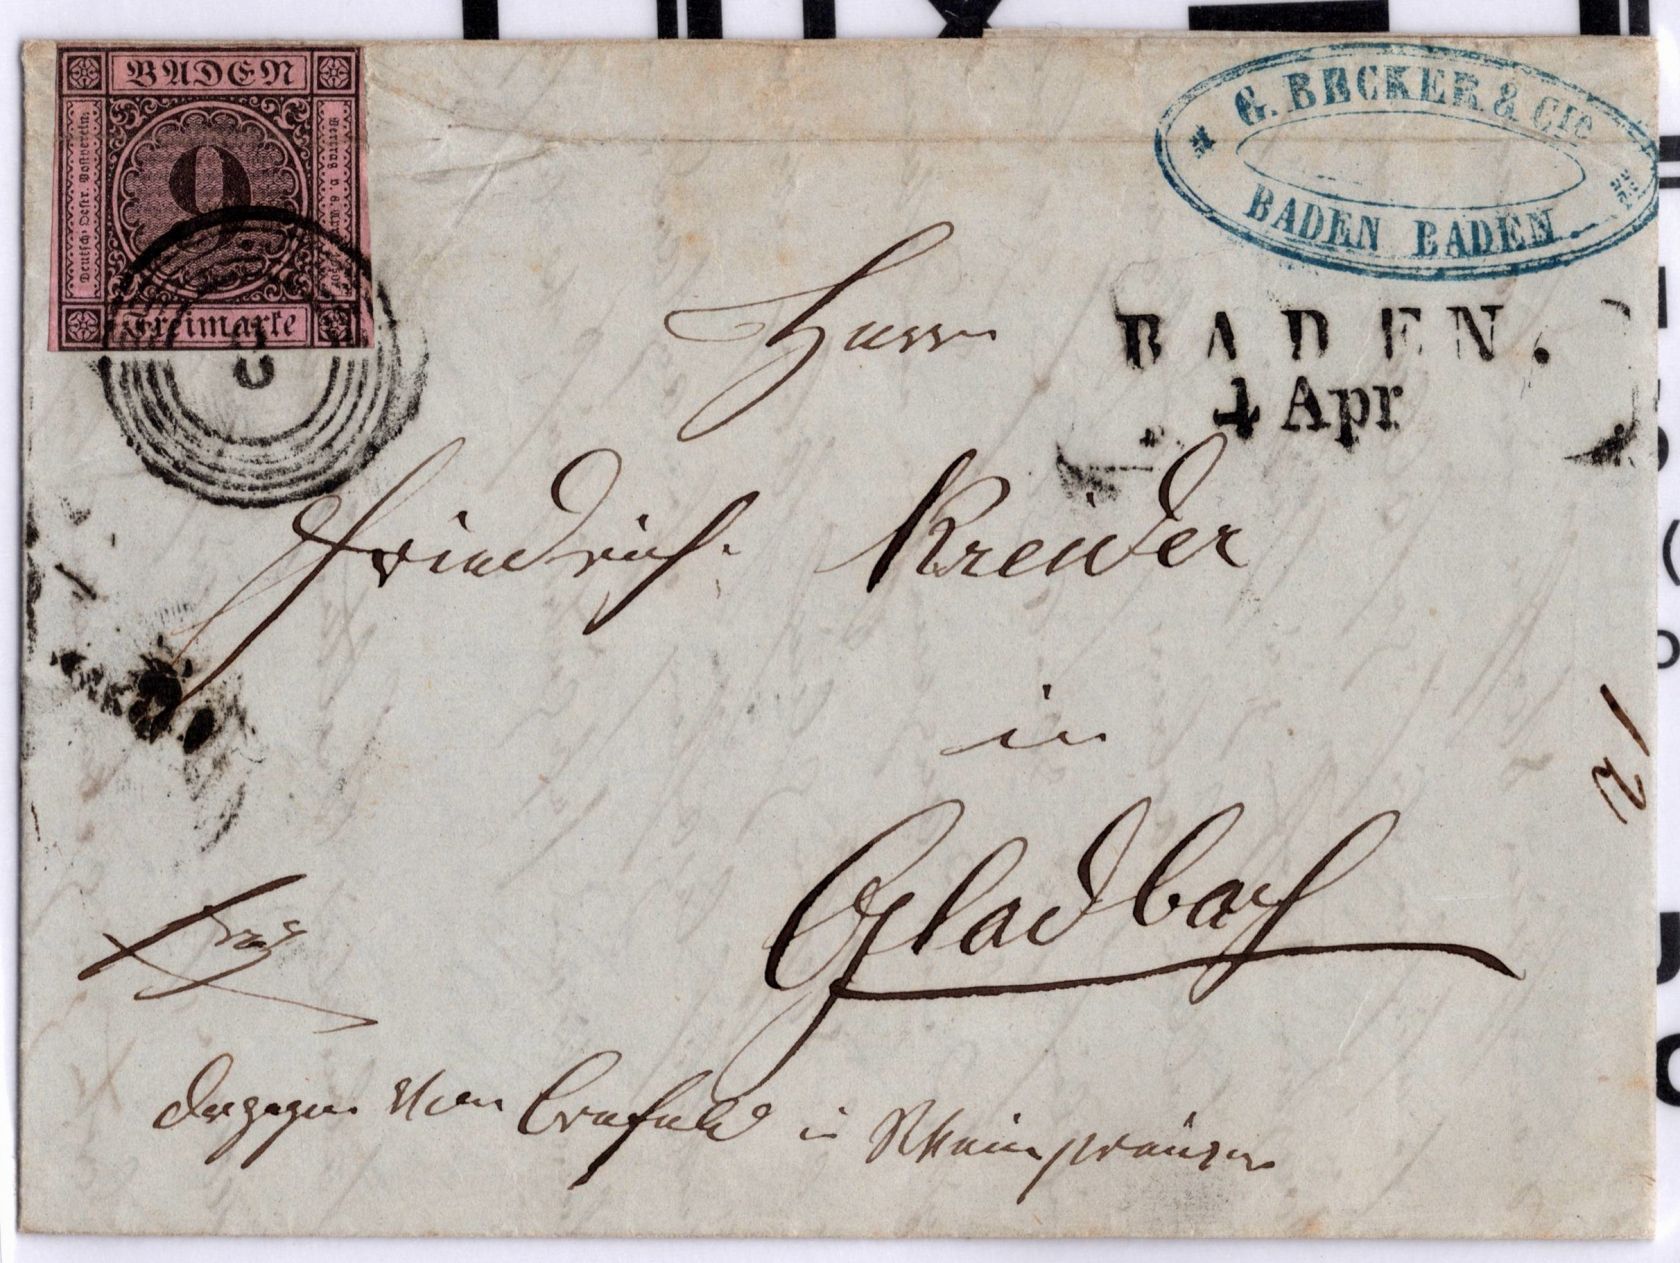 BADEN
Deutsch-Oestr. Postverein.
9
Freimarke
8
G. BECKER & CIE
BADEN BADEN
BADEN.
4 Apr
Herrn
Friedrich Kreider
in
Gladbach
Crefeld in Rheinpreußen